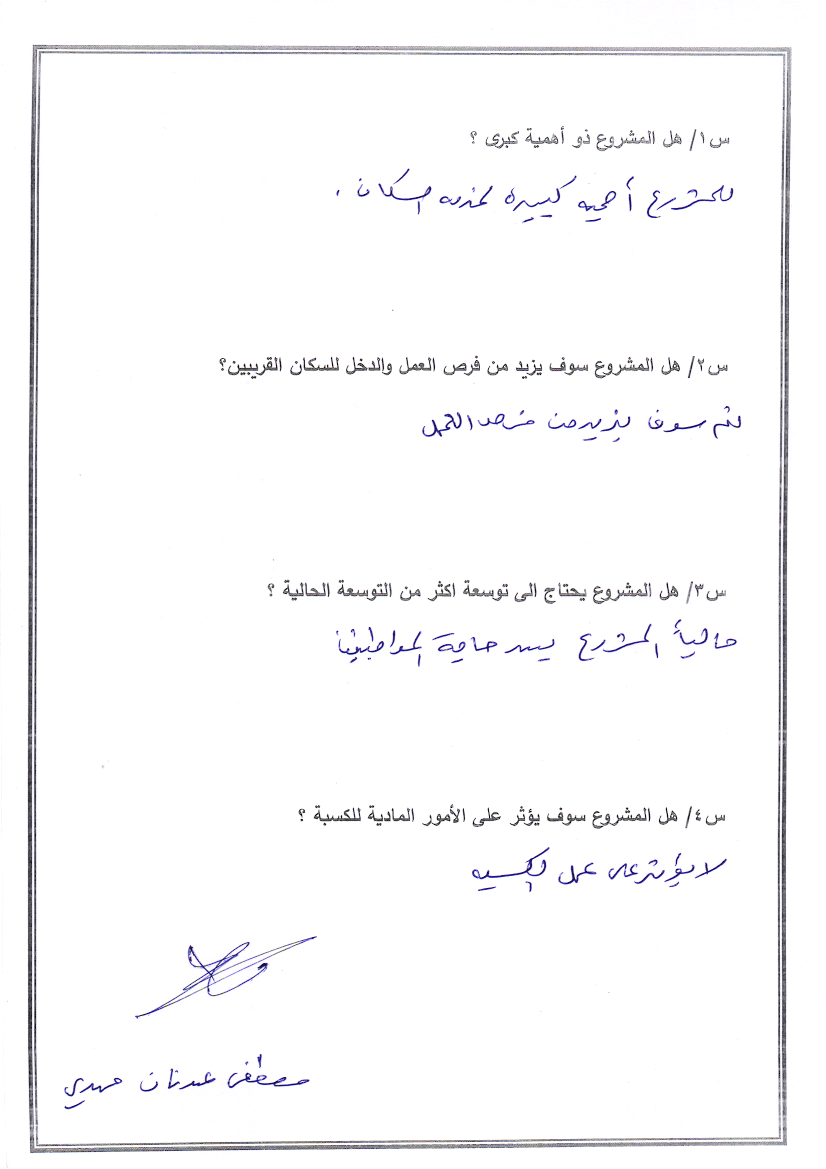 س١/ هل المشروع ذو أهمية كبرى ؟
للمشروع أهمية كبيرة لخدمة السكان .
س٢/ هل المشروع سوف يزيد من فرص العمل والدخل للسكان القريبين؟
نعم سوف يزيد من فرص العمل
س٣/ هل المشروع يحتاج الى توسعة اكثر من التوسعة الحالية ؟
حالياً المشروع يسد حاجة المواطنين
س٤/ هل المشروع سوف يؤثر على الأمور المادية للكسبة ؟
لا يؤثر على عمل الكسبه
مصطفى عدنان مهدي